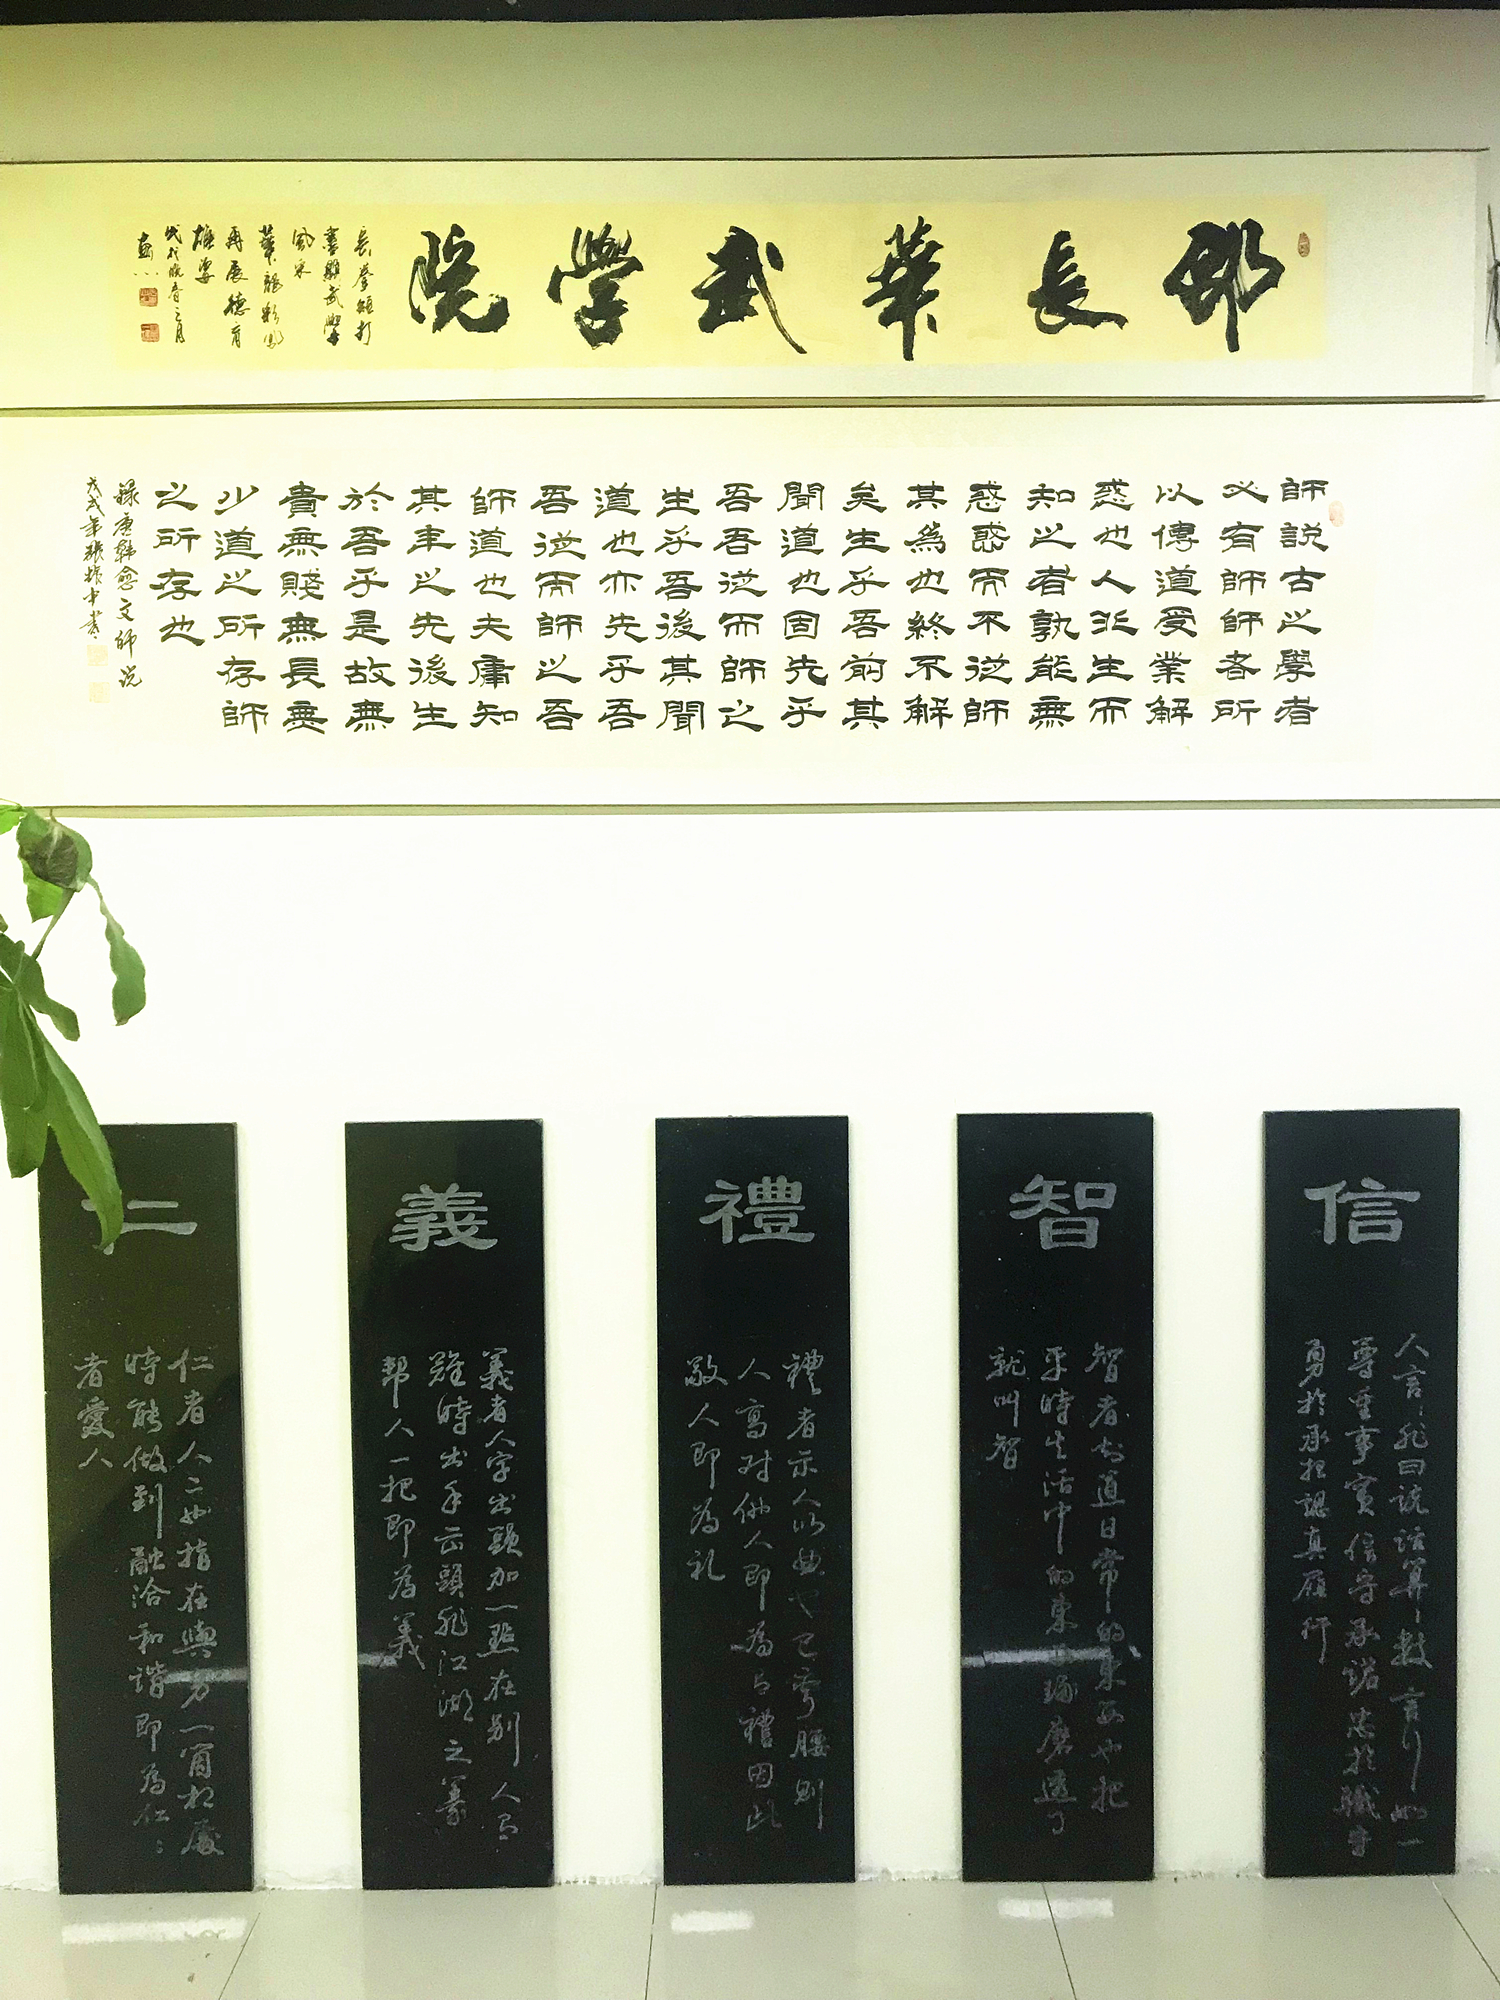 邵長華武學院
長拳短打
書顯武學
風采
華龍彩鳳
再展德育
雄姿
師説古之學者
必有師師者所
以傳道受業解
惑也人非生而
知之者孰能無
惑惑而不從師
其為也終不解
矣生乎吾前其
聞道也固先乎
吾吾從而師之
生乎吾後其聞
道也亦先乎吾
吾從而師之吾
師道也夫庸知
其年之先後生
於吾乎是故無
貴無賤無長無
少道之所存師
之所存也
錄唐韓愈文師说
戊戌年張振中書
信
人言非曰説話算數言行如一
尊重事實信守承諾忠於職守
勇於承担認真履行
智
智者知道日常的東西也把
平時生活中的東西琢磨透了
就叫智
禮
禮者示人以曲也己弯腰則
人高对他人即為有禮因此
敬人即為礼
義
義者人字出頭加一點在别人有
難時出手出頭非江湖之義
帮人一把即為義
仁
仁者人二也指在與另一箇相處
時能做到融洽和谐即為仁仁
者愛人